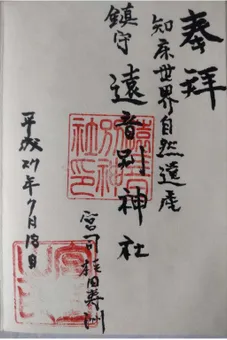 奉拝
知床世界自然遺産
鎮守 遠音別神社
遠音別神社印
宮司
平成27年7月18日